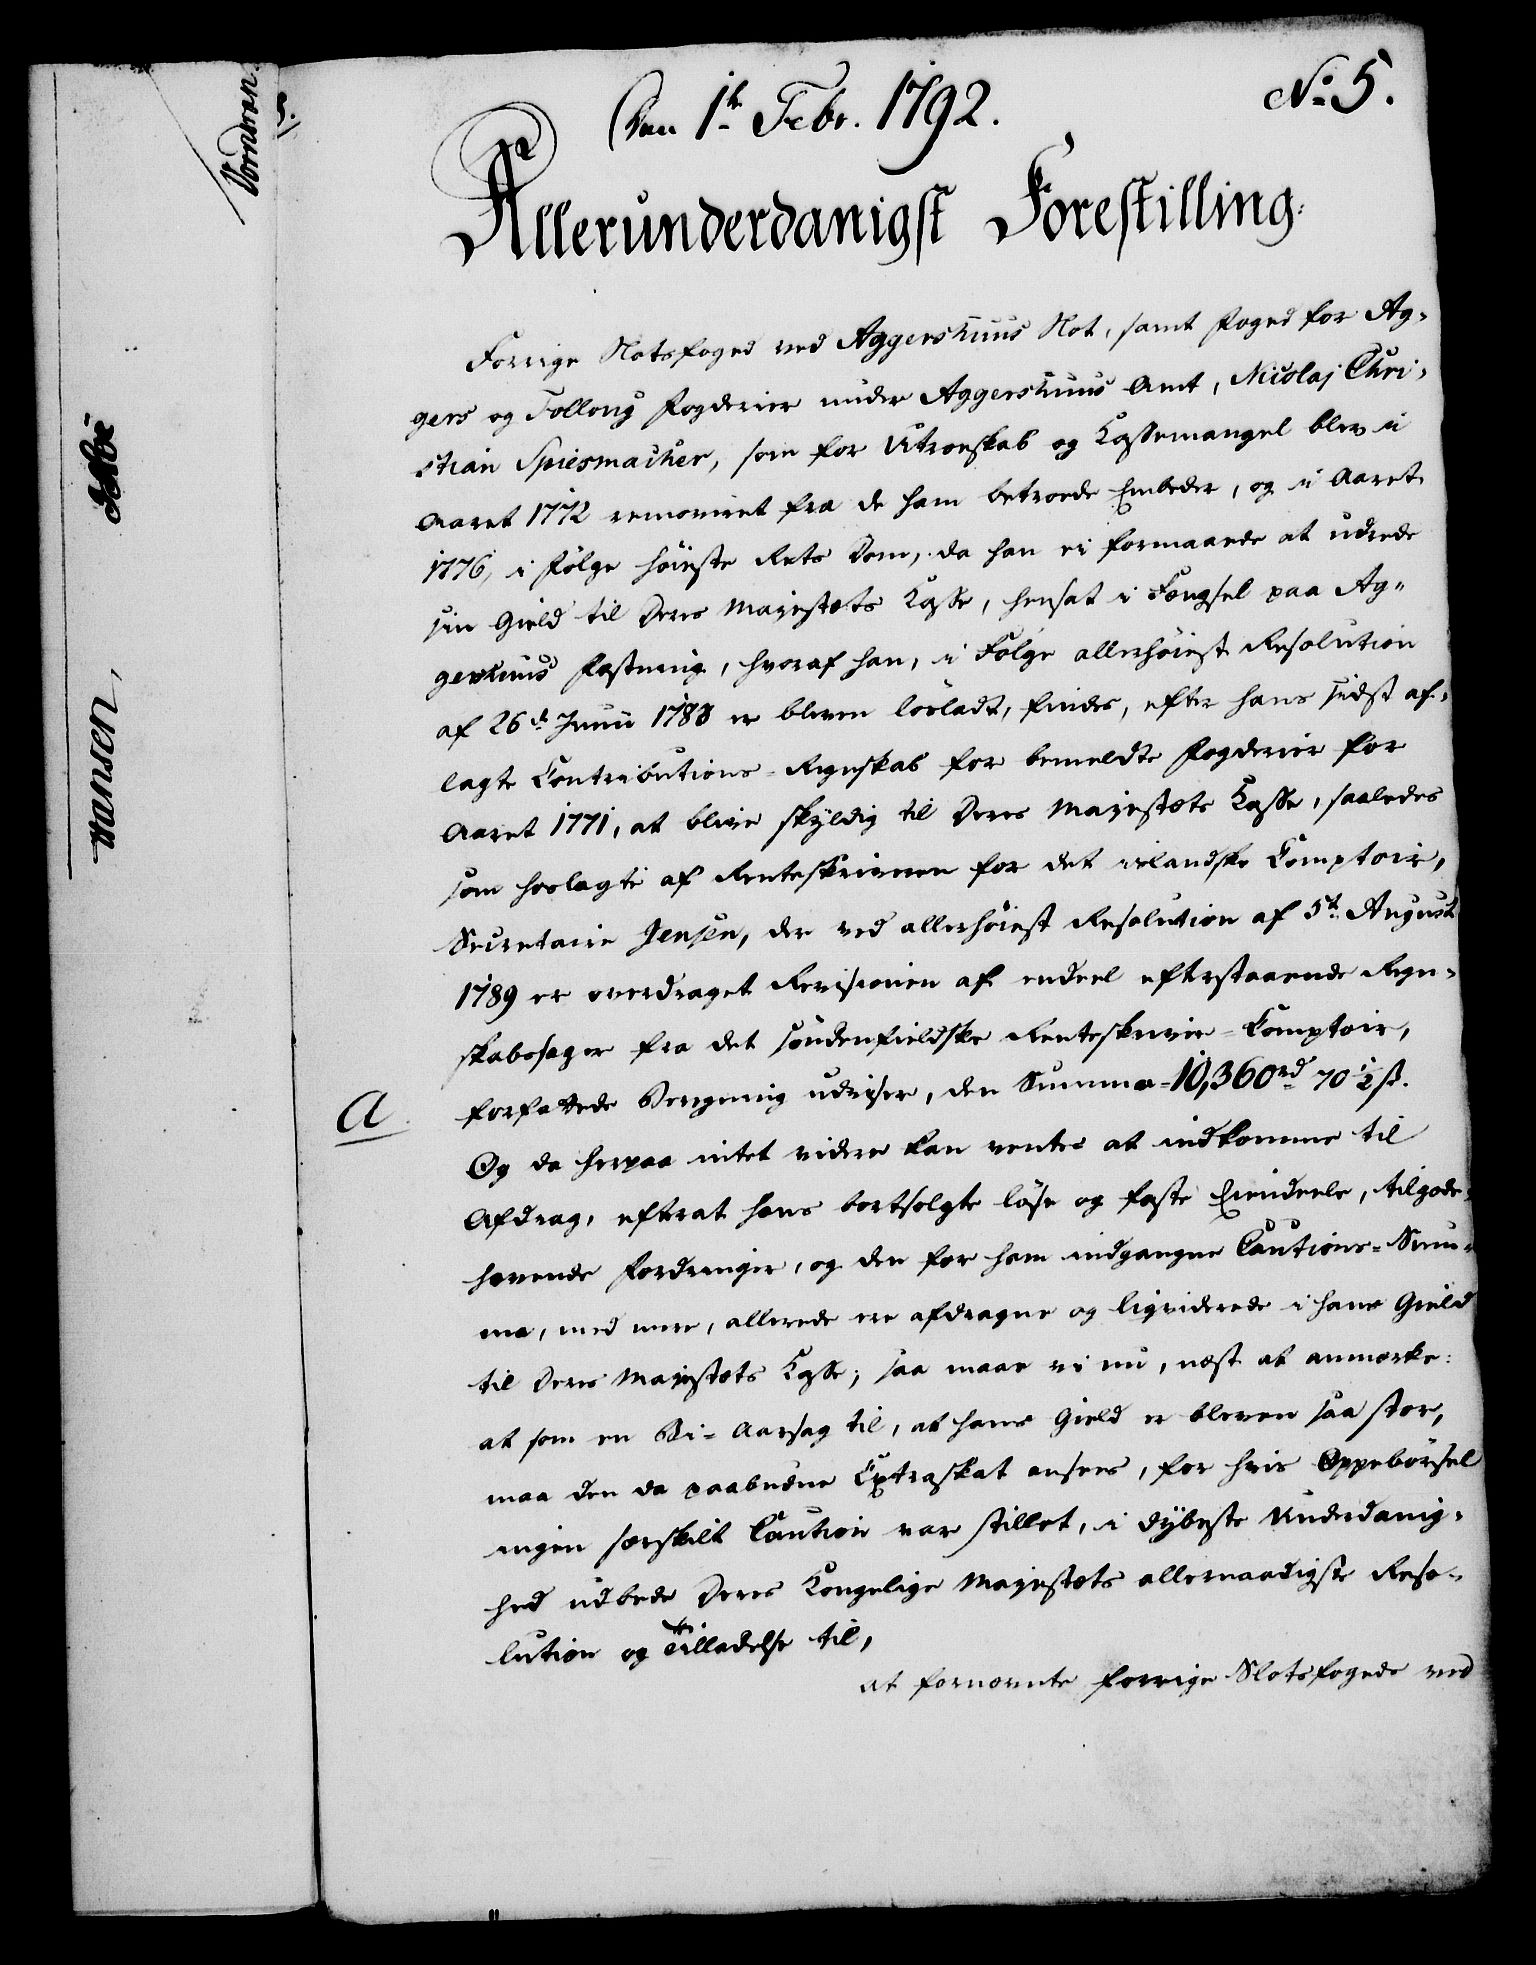 No 5.
Den 1te Febr. 1792.
Allerunderdanigst Forestilling.
Forrige Slotsfoged ved Aggershuus Slot, samt Foged for Ag-
gers og Follong Fogderier under Aggershuus Amt, Nicolaj Chri-
stian Spiesmacher, som for Utroeskab og Cassemangel blev i
Aaret 1772 removeret fra de ham betroede Embeder, og i Aaret
1776, i følge höieste Rets Dom, da han ei formaaede at udrede
sin Gield til Deres Majestæts Casse, hensat i Fængsel paa Ag-
gershuus Fæstning, hvoraf han, i Følge allerhöieste Resolution
af 26de Junii 1788 er bleven lösladt, findes, efter hans sidst af-
lagte Contributions-Regnskab for bemeldte Fogderier for
Aaret 1771, at blive skyldig til Deres Majestæts Casse, saaledes
som hoslagte af Renteskriveren for det islandske Comptoir,
Secretaire Jensen, der ved allerhöiest Resolution af 5te August
1789 er overdraget Revisionen af endeel efterstaaende Regn-
skabssager fra det söndenfieldske Renteskriver-Comptoir,
A. forfattede Beregning udviser, den Summa 10,360rd 70½ s.
Og da herpaa intet videre kan ventes at indkomme til
Afdrag, efterat hans bortsolgte löse og faste Eiendeele, tilgode-
havende Fordringer, og den for ham indgangne Cautions-Sum-
ma, med mere, allerede ere afdragne og liqviderede i hans Gield
til Deres Majestæts Casse; saa maae vi nu, næst at anmærke:
at som en Bi-Aarsag til, at hans Gield er bleven saa stor,
maa den da paabudne Extraskat ansees, for hvis Oppebörsel
ingen særskilt Caution var stillet, i dybeste Underdanig-
hed udbede Deres Kongelige Majestæts allernaadigste Reso-
lution og Tilladelse til,
at fornævnte forrige Slotsfogede ved